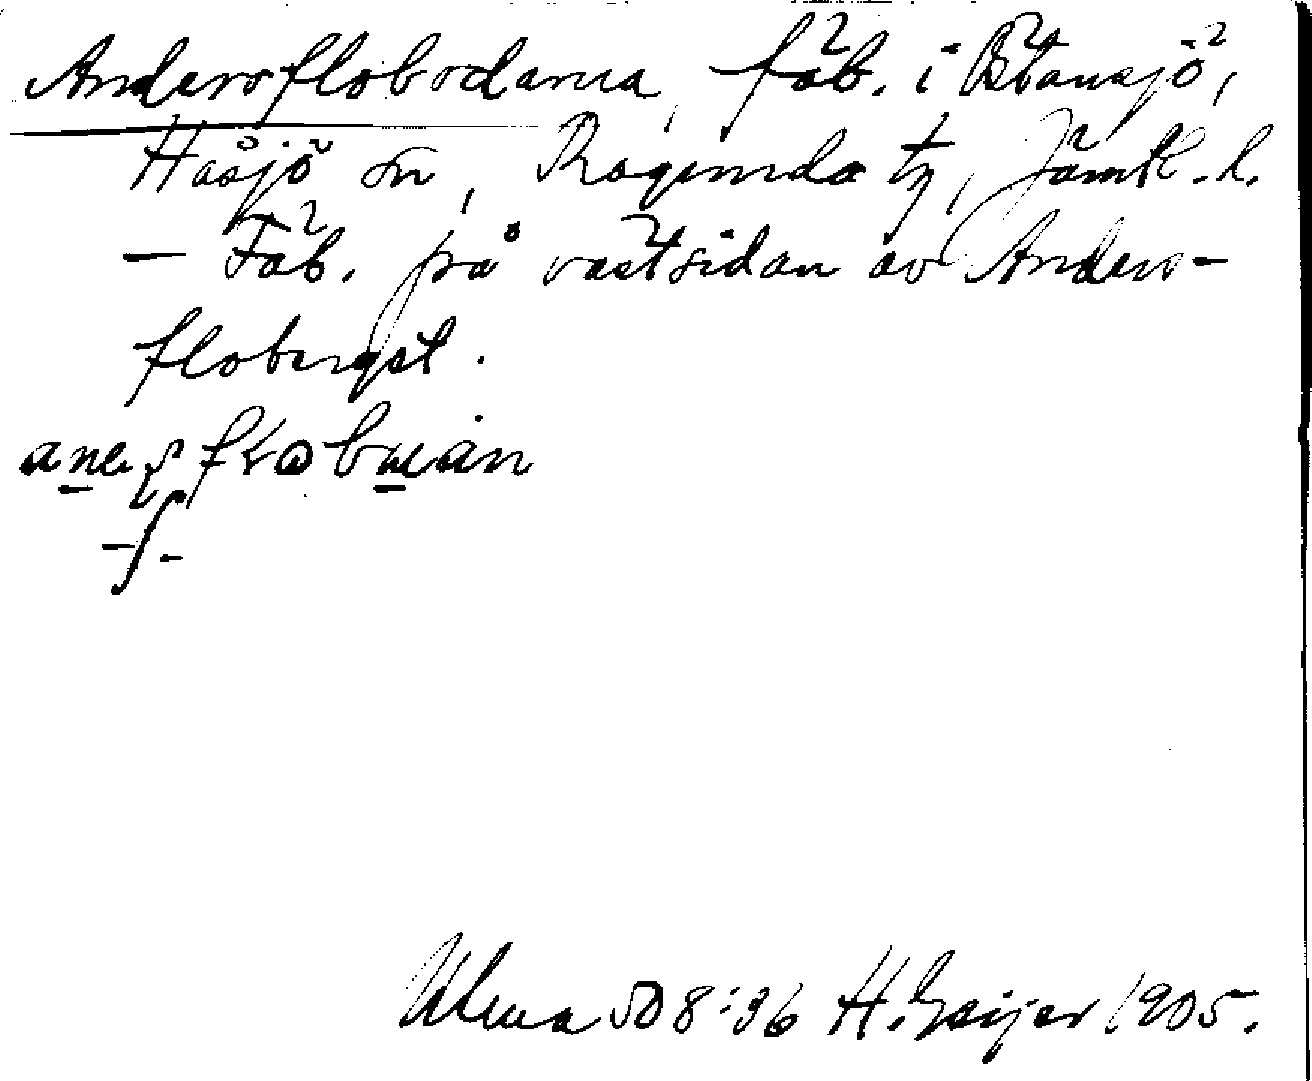 Andersflobodarna, fäb. i Båtansjö,
Håsjö sn, Ragunda tg, Jämtl. l.
– Fäb. på västsidan av Anders-
floberget.
Ulma 508:36 H. Geijer 1905.